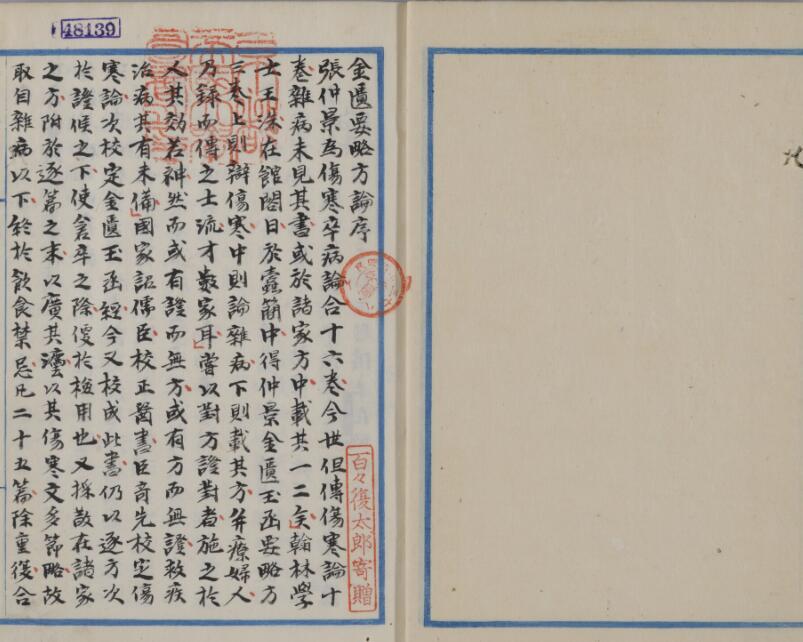 金匱要略方論序
張仲景為傷寒卒病論合十六卷今世但傳傷寒論十
卷雜病未見其書或於諸家方中載其一二矣翰林學
士王洙在館閣日於蠹簡中得仲景金匱玉函要略方
三卷上則辯傷寒中則論雜病下則載其方并療婦人
乃錄而傳之士流才數家耳嘗以對方證對者施之於
人其効若神然而或有證而無方或有方而無證救疾
治病其有未備國家詔儒臣校正醫書臣奇先校定傷
寒論次校定金匱玉函經今又校成此書仍以逐方次
於證候之下使倉卒之際便於檢用也又採散在諸家
之方附於逐篇之末以廣其法以其傷寒文多節略故
取自雜病以下終於飲食禁忌凡二十五篇除重復合
百々復太郎寄贈
48139